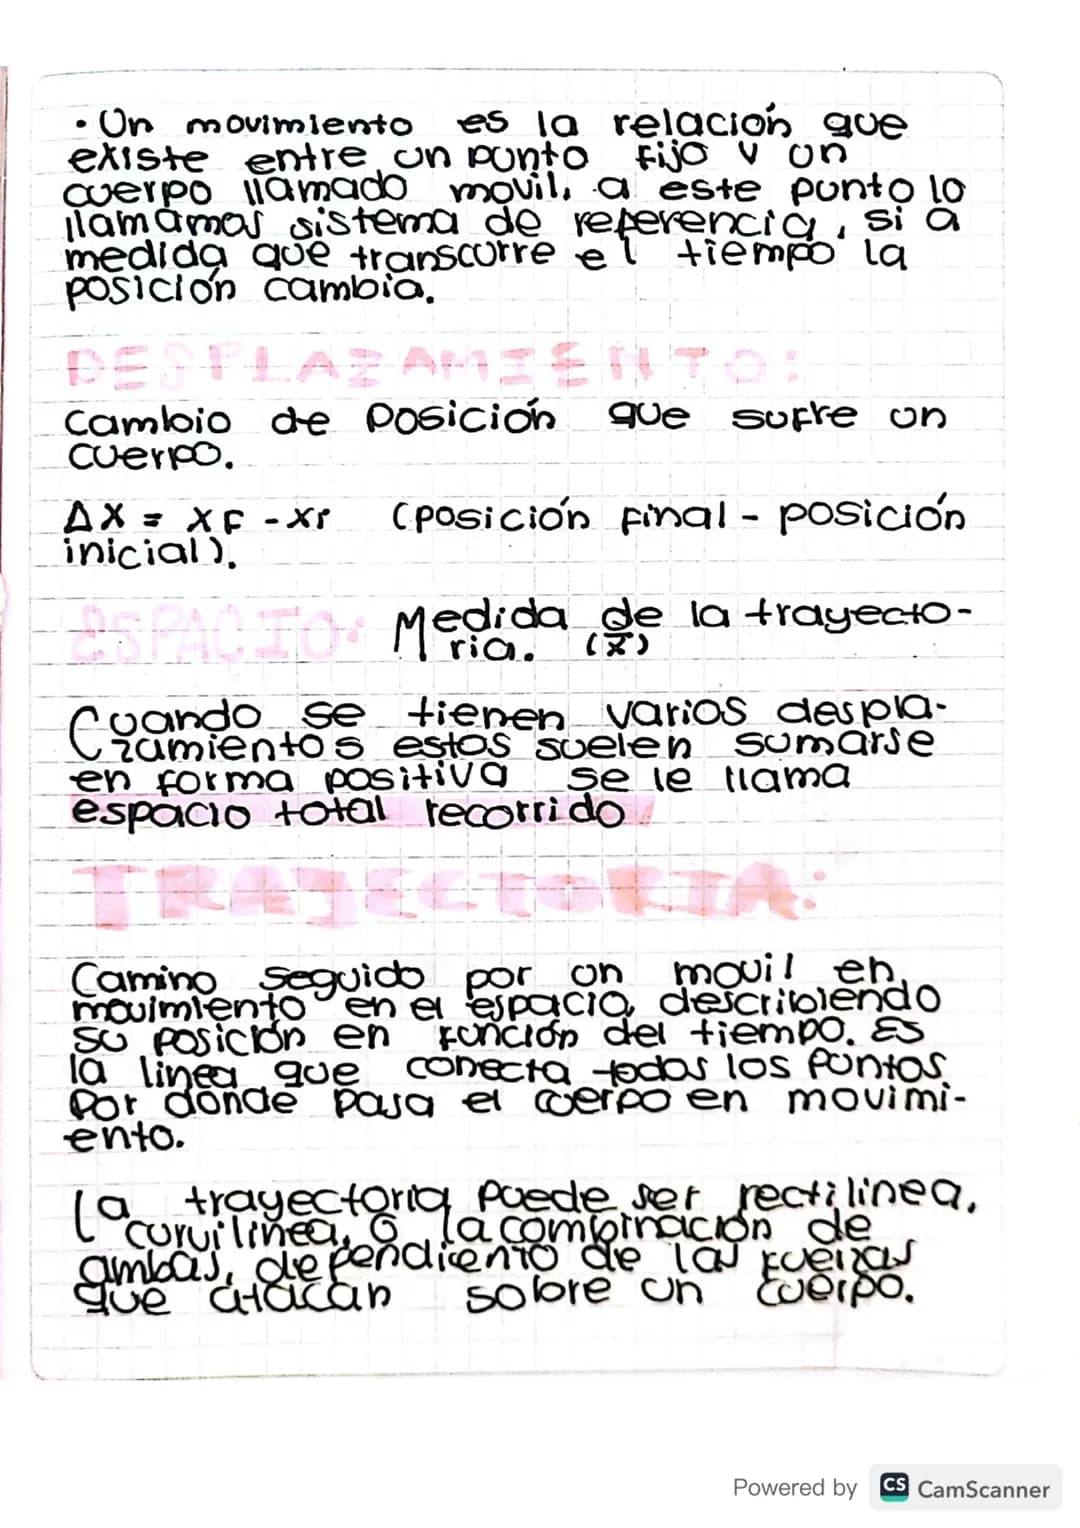 • Un movimiento es la relación que
existe entre un punto fijo y un
cuerpo llamado movil, a este punto lo
llamamos sistema de referencia, si a
medida que transcurre el tiempo la
posición cambia.
DESPLAZAMIENTO:
Cambio de posición que sufre un
cuerpo.
ΔX = XF - Xi (posición final - posición
inicial).
ESPACIO: Medida de la trayecto-
ria. (x̄)
Cuando se tienen varios despla-
zamientos estos suelen sumarse
en forma positiva se le llama
espacio total recorrido
TRAJECTORIA:
Camino seguido por un movil en
movimiento en el espacio, describiendo
su posición en función del tiempo. Es
la linea que conecta todos los puntos
por donde pasa el cuerpo en movimi-
ento.
La trayectoria puede ser rectilinea,
curvilinea, ó la combinación de
ambas, dependiento de las fuerzas
que atacan sobre un cuerpo.
Powered by CS CamScanner